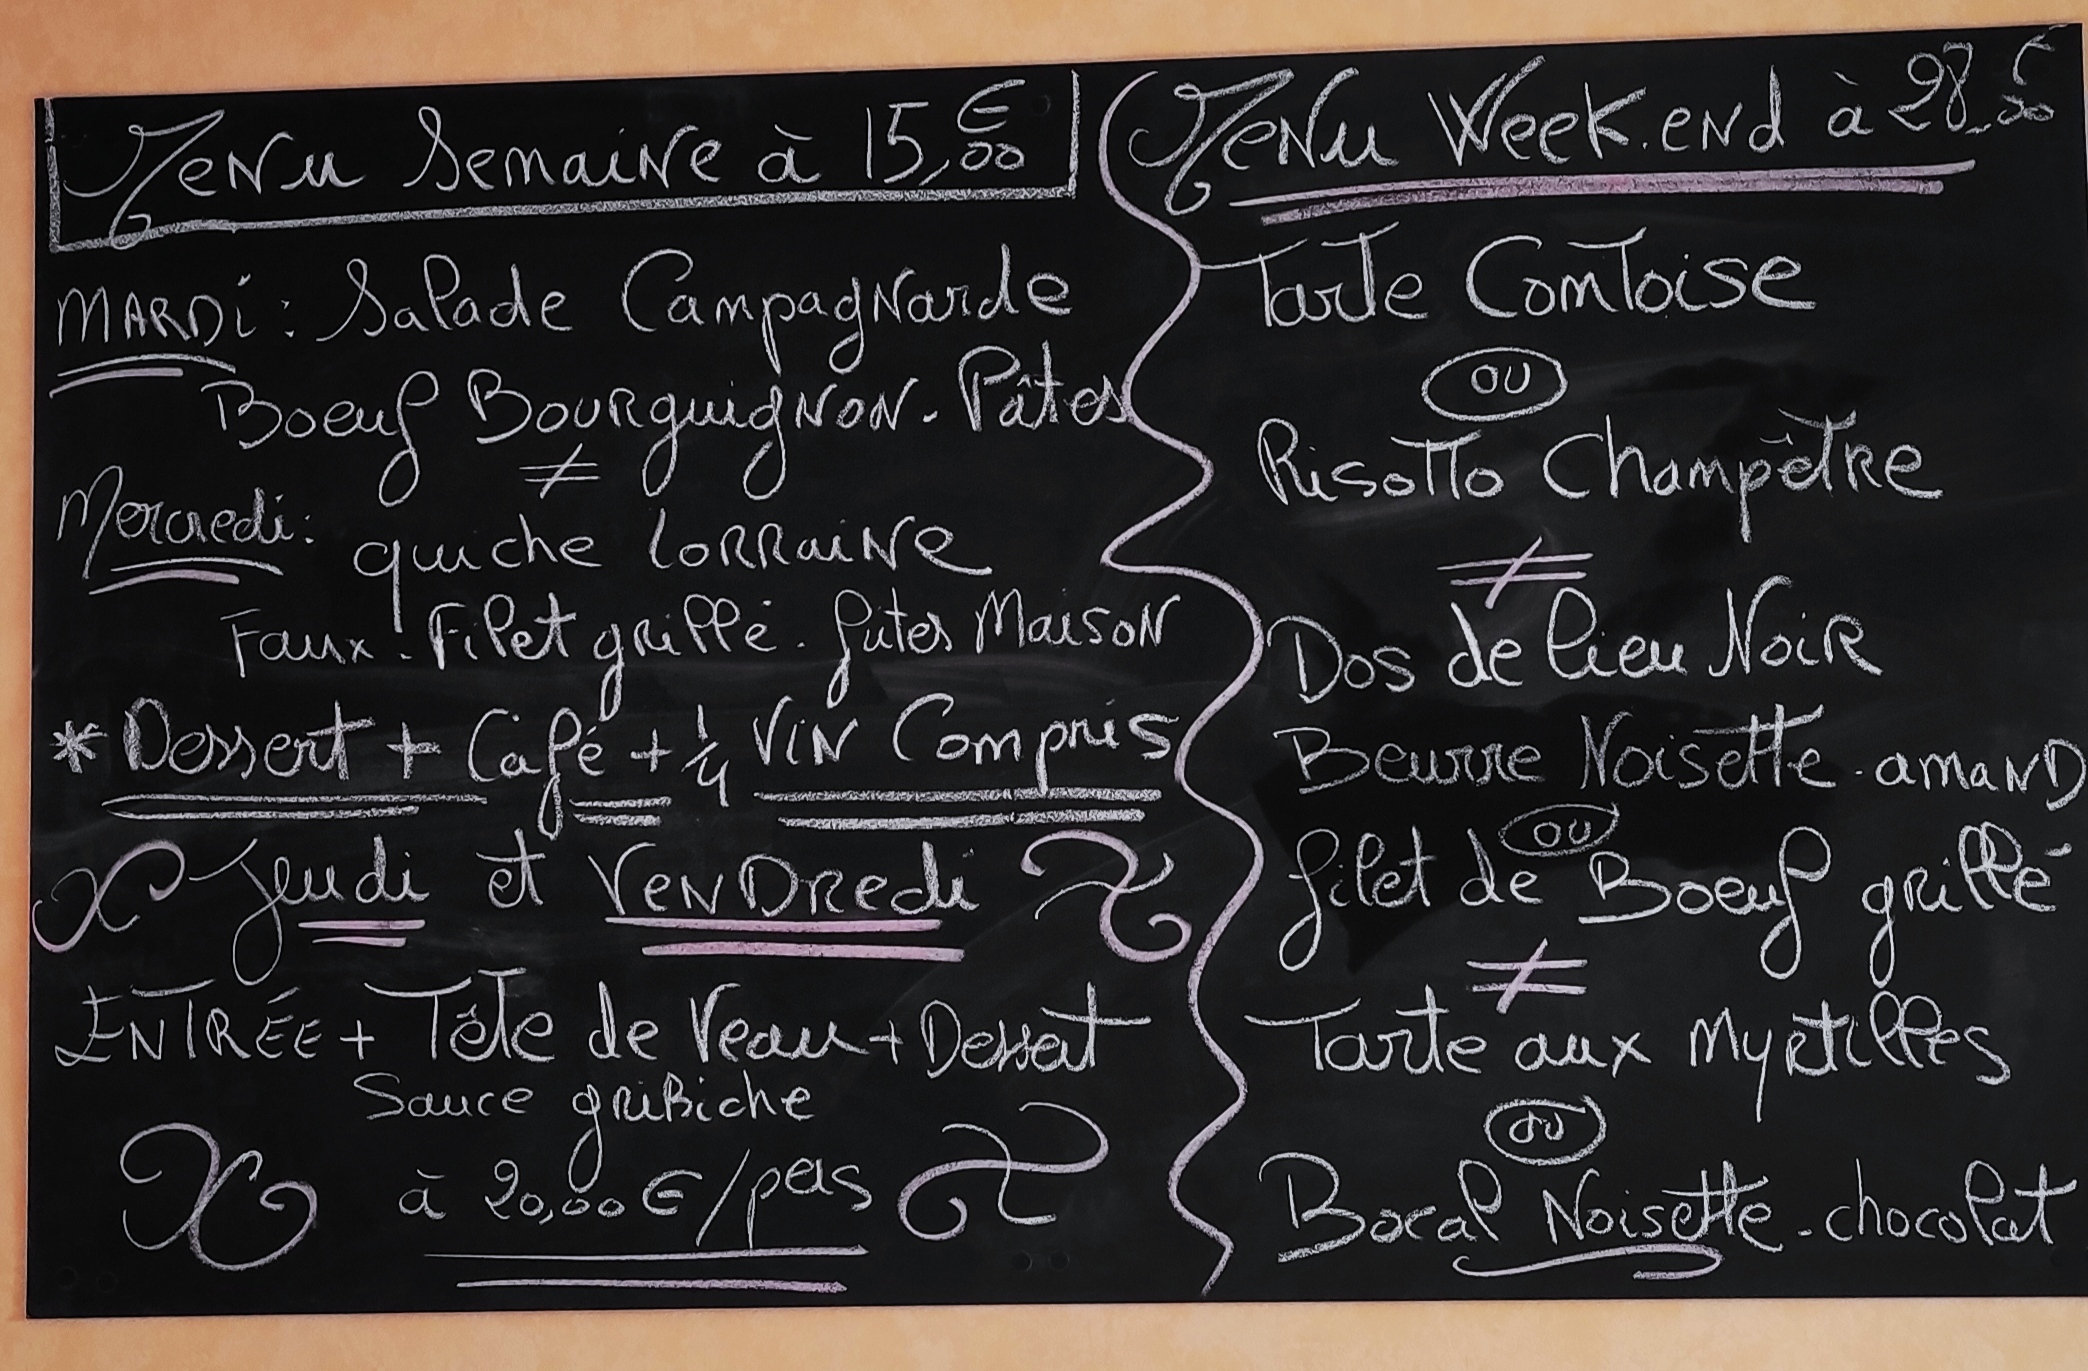 Menu Semaine à 15,00€
MARDi : Salade Campagnarde
Boeuf Bourguignon - Pâtes
≠
Mercredi : quiche Lorraine
Faux-Filet grillé - frites Maison
* Dessert + Café + 1/4 Vin Compris
Jeudi et Vendredi
ENTRÉE + Tête de Veau + Dessert
Sauce gribiche
à 20,00€/pers
Menu Week-end à 28,50€
Tarte Comtoise
ou
Risotto Champêtre
≠
Dos de lieu Noir
Beurre Noisette - amand
ou
filet de Boeuf grillé
≠
Tarte aux Myrtilles
ou
Bocal Noisette - chocolat